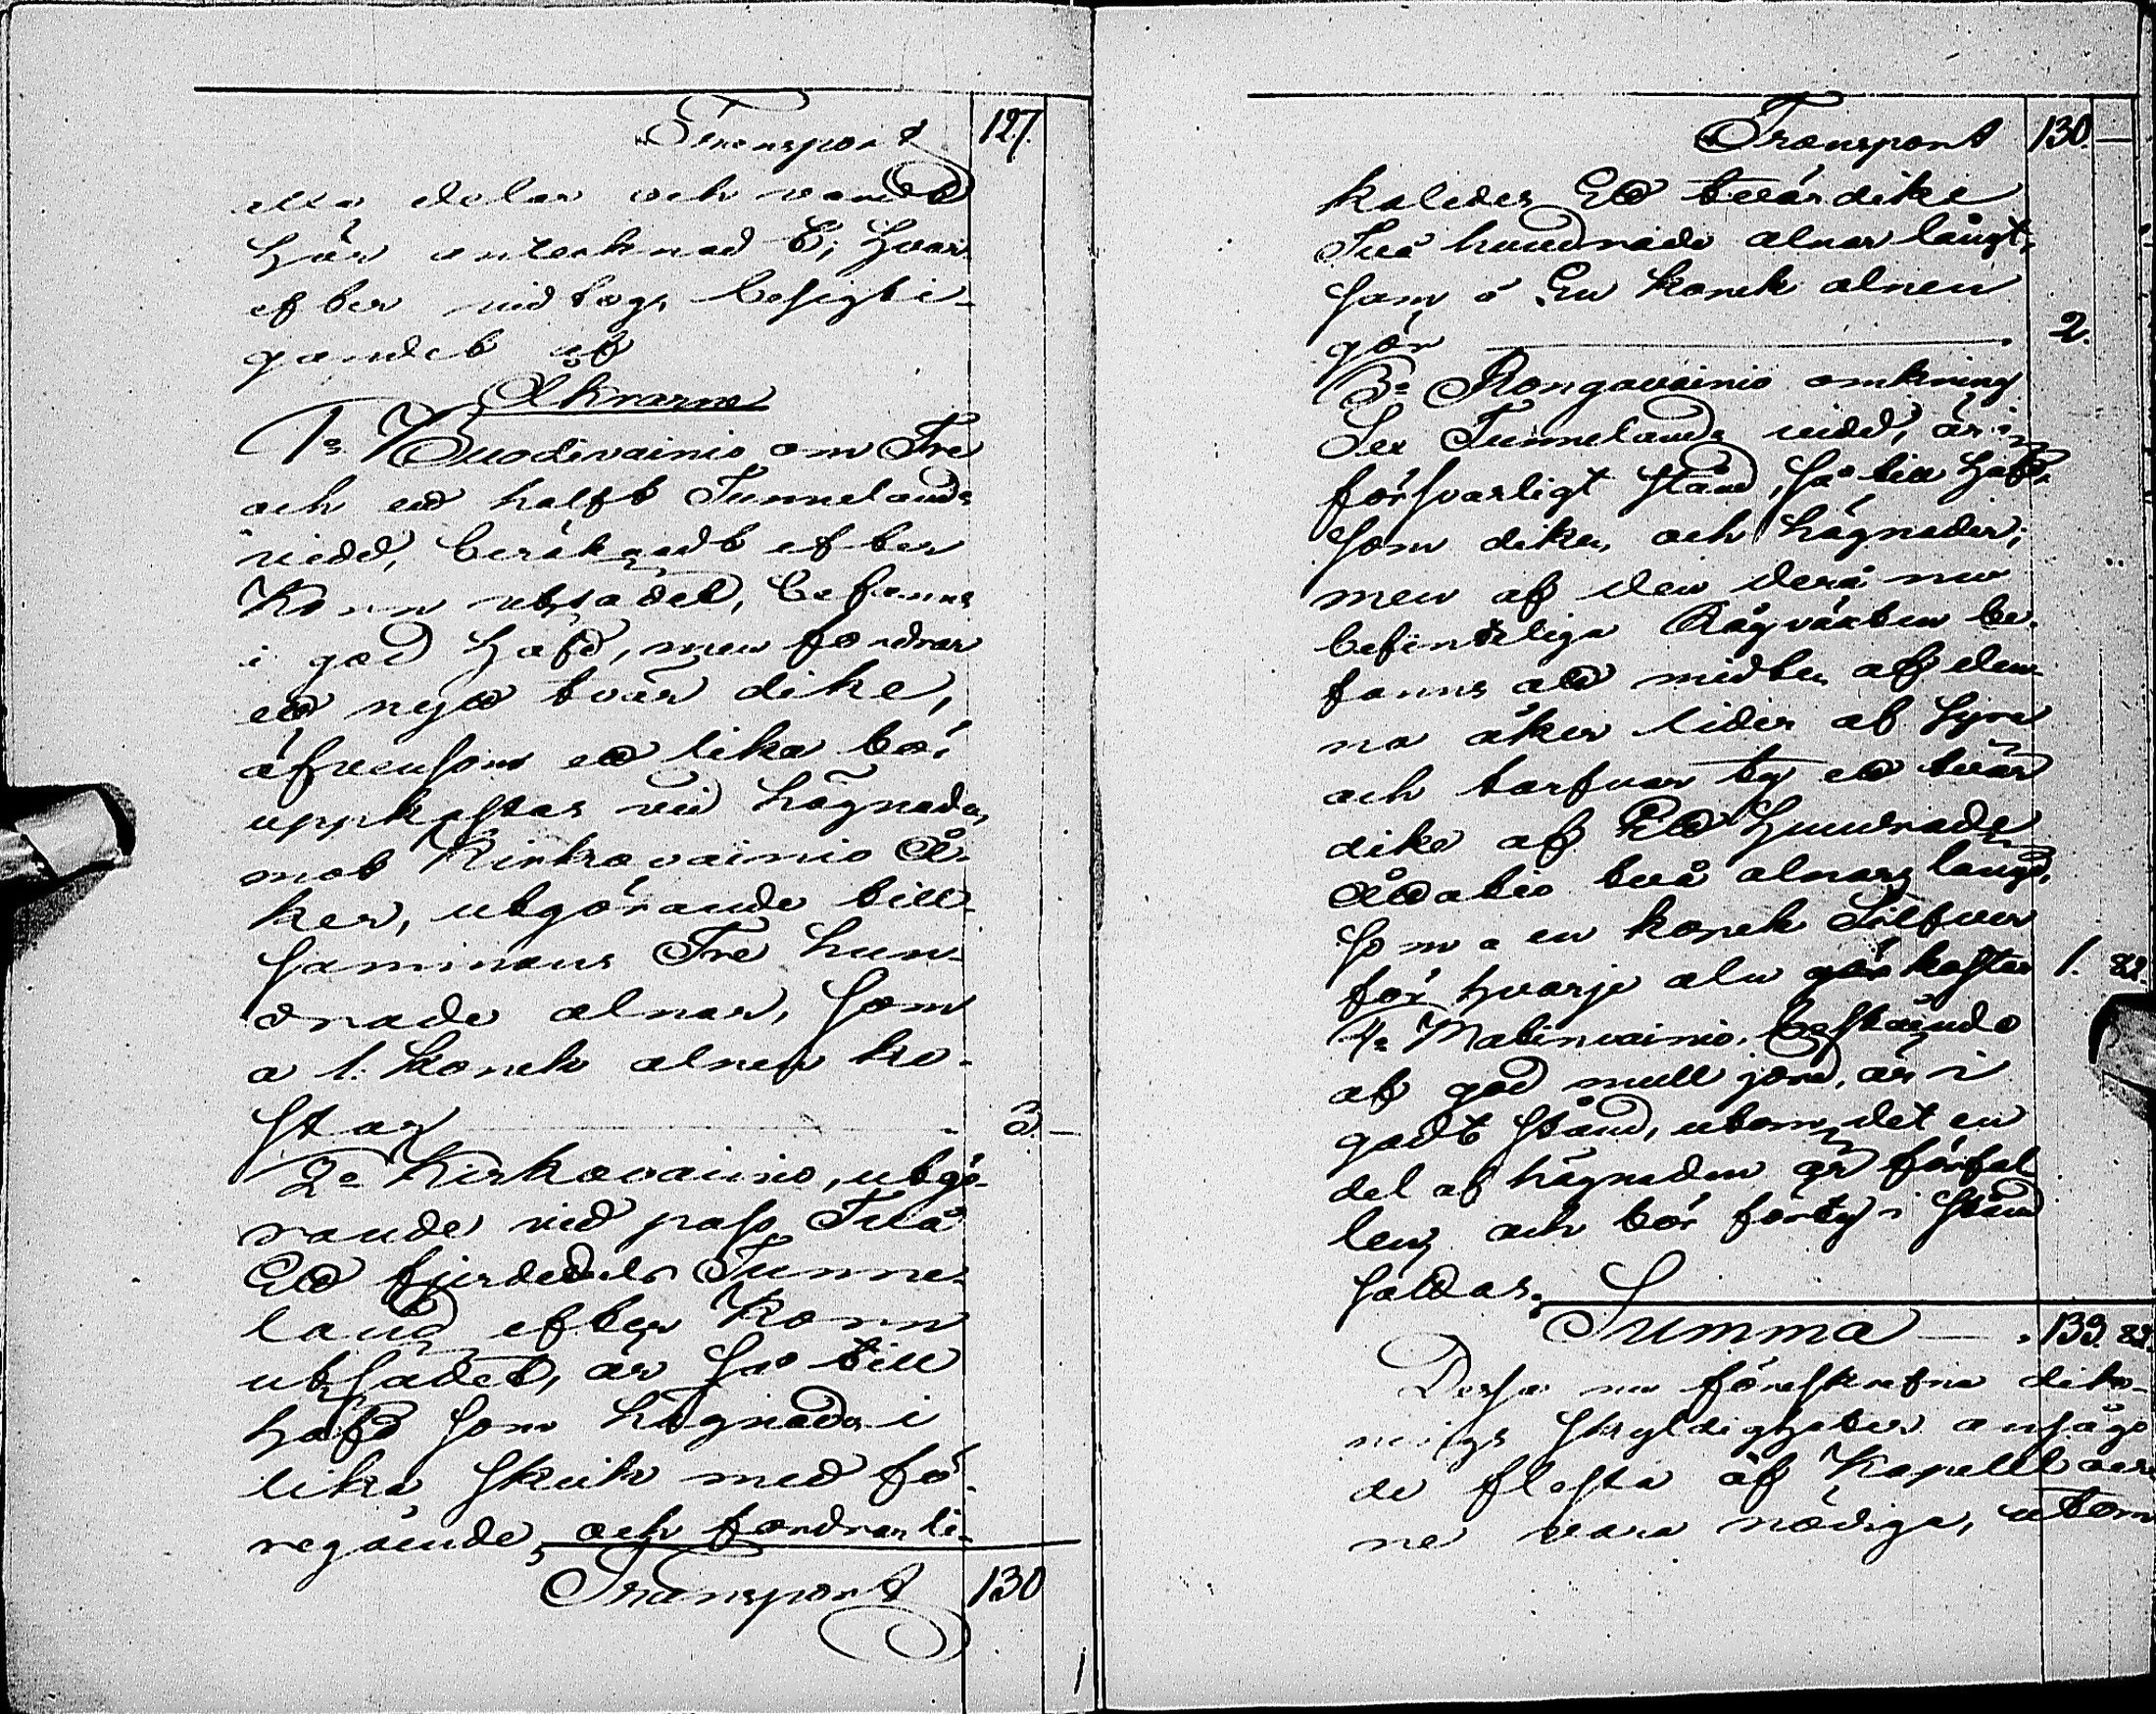 Transport 127.
delar och vardt
här antecknad E; hvar-
efter vidtogs besigti-
gandet af
Åkrarne
1º Vuodivainio om Tre
och ett halft Tunnelands
vidd, beräknadt efter
Korn utsädet, befanns
i god häfd, men fordrar
ett nytt tvär dike,
äfvensom ett lika bör
uppkastas vid hägnaden
mot Kirkovainio Å-
ker, utgörande till-
sammans Tre hun-
drade alnar, som
a 1. kopek alnen ko-
star 3. —
2º Kirkovainio, utgö-
rande vid pass Två
Ett fjerdedels Tunne-
land efter Korn
utsädet, är så till
häfd som hägnader i
lika skick med fö-
regående, och fordrar li-
Transport 130
Transport 130. —
kaledes Ett tvärdike
Två hundrade alnar långt,
som á En kopek alnen
gör 2.
3º Rongavainio omkring
Sex Tunnelands vidd, är i
försvarligt stånd, så till häfd,
som diken och hägnader,
men af den derå nu
befintliga Rågväxten be-
fanns att midten af den-
na åker lider af syra
och tarfvar ty ett tvär
dike af Ett Hundrade
Åttatio två alnars längd,
som a en kopek Silfver
för hvarje aln kostar 1. 82.
4º Matinvainio, bestående
af god mull jord, är i
godt stånd, utom det en
del af hägnaden är förfal-
len, och bör förty i stånd
sättas.
Summa — . 133. 82.
Dessa nu föreskrefna dik-
nings skyldigheter ansågo
de flesta af Kapellboer-
ne vara nödiga, utom